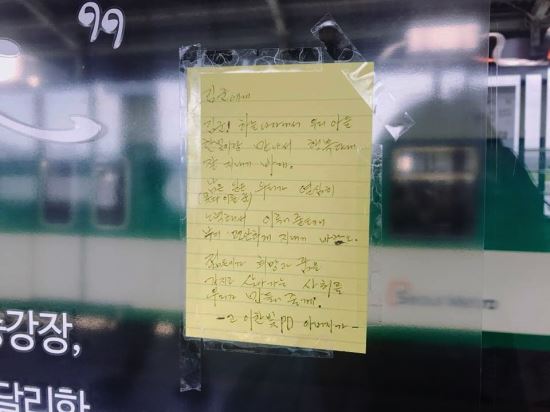 ”
김군에게
김군! 하늘나라에서 우리 아들
한빛이랑 만나서 행복하게
잘 지내기 바래.
남은 일은 우리가 열심히
노력해서 이루어줄테니
부디 편안하게 지내기 바란다.
젊은이가 희망과 꿈을
가지고 살아가는 사회를
우리가 만들어 줄게.
- 고 이한빛PD 아버지가 -
승강장,
달리한